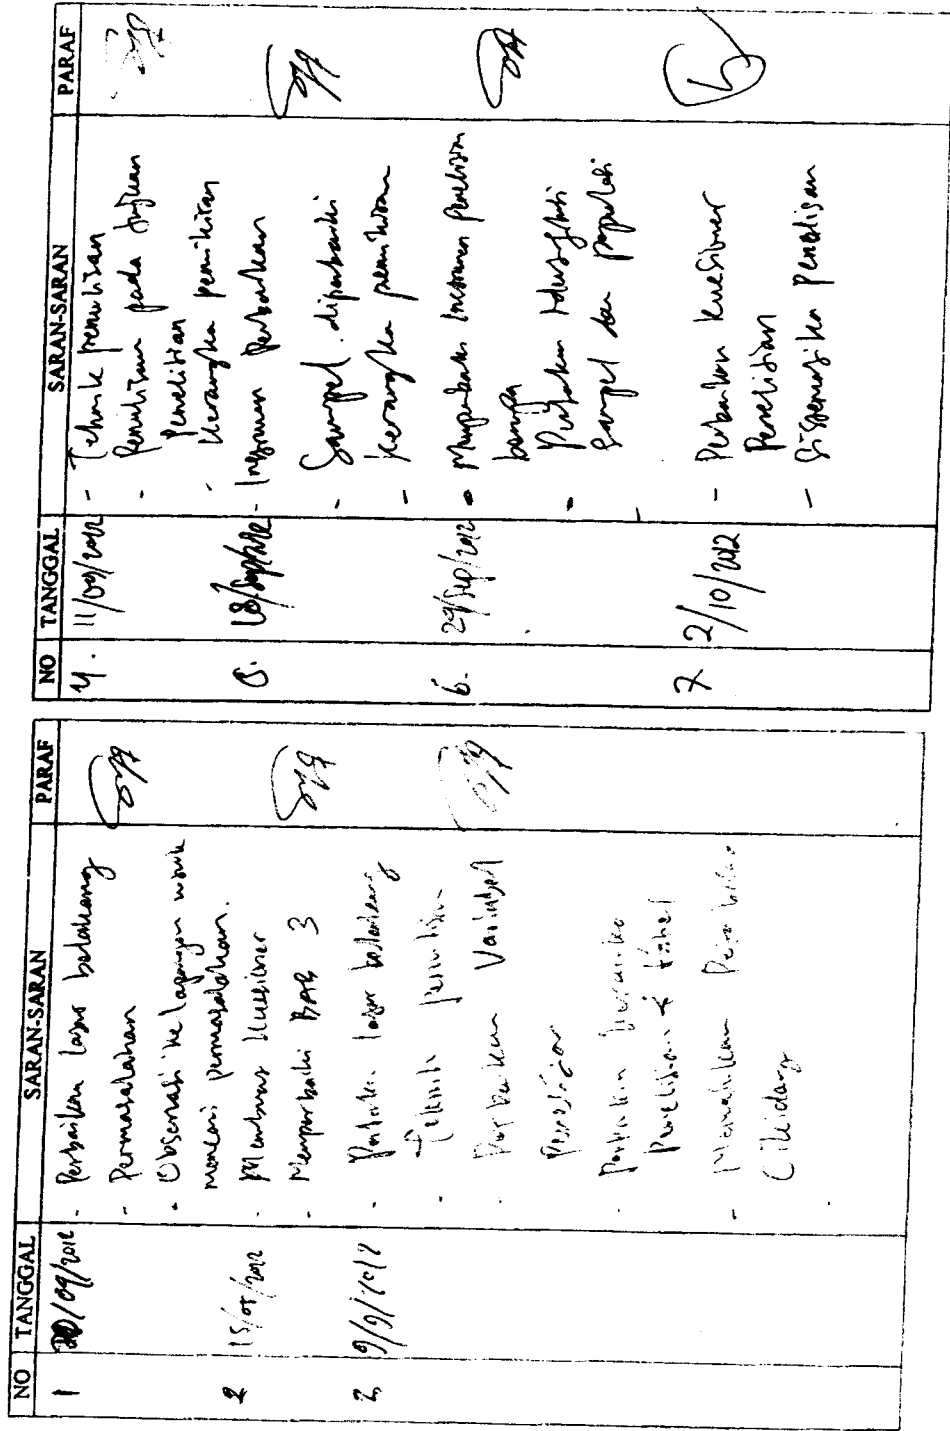 NO TANGGAL SARAN-SARAN PARAF
1 /09/2012 - Perbaikan latar belakang
- Permasalahan
- Observasi ke lapangan untuk
mencari permasalahan.
2 15/05/2012 - Membuat kuesioner
- Memperbaiki BAB 3
3 9/9/2012 - Perbaikan latar belakang
- Teknik penulisan
- Perbaikan Variabel
Penelitian
- Perbaikan kerangka
Penelitian & tabel
- Menambahkan
Cikidang
NO TANGGAL SARAN-SARAN PARAF
4. 11/09/2012 - Tehnik penulisan
- Penulisan pada tujuan
Penelitian
- Kerangka pemikiran
5. 18/Sep/2012 - Instrumen Perbaikan
- Sampel diperbaiki
- Kerangka pemikiran
6. 29/Sep/2012 Instrumen penelitian
Perbaikan
Sampel dan populasi
7 2/10/2012 - Perbaikan kuesioner
Penelitian
- Sistematika Penulisan